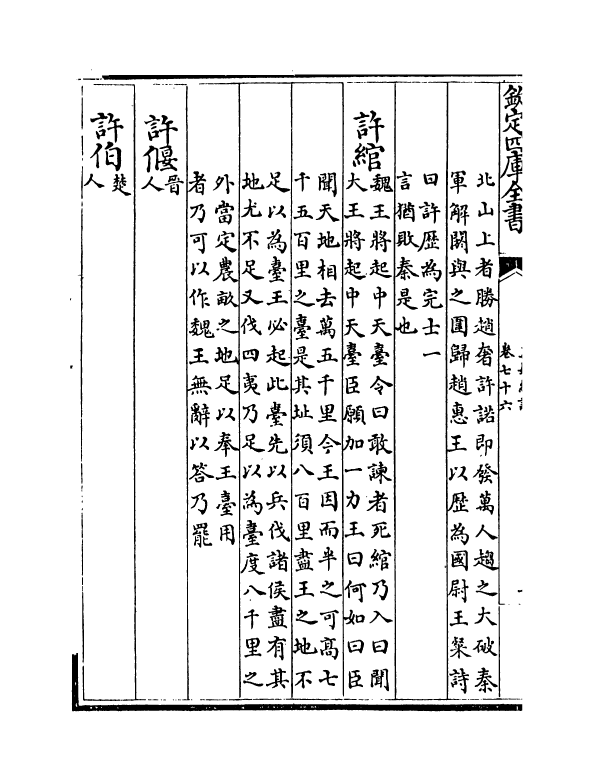 欽定四庫全書
卷七十六
北山上者勝趙奢許諾即發萬人趨之大破秦
軍解閼與之圍歸趙惠王以歴為國尉王粲詩
曰許歴為完士一
言猶敗秦是也
許綰
魏王將起中天臺令曰敢諫者死綰乃入曰聞
大王將起中天臺臣願加一力王曰何如曰臣
聞天地相去萬五千里今王因而半之可髙七
千五百里之臺是其址須八百里盡王之地不
足以為臺王必起此臺先以兵伐諸侯盡有其
地尤不足又伐四夷乃足以為臺度八千里之
外當定農畝之地足以奉王臺用
者乃可以作魏王無辭以答乃罷
許偃
晉
人
許伯
楚
人